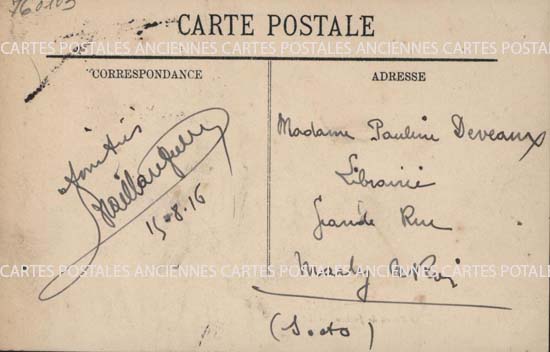 760103
CARTE POSTALE
CARTES POSTALES ANCIENNES CARTES POSTALES ANCIENNES CARTES POSTALES ANCIENNES
CORRESPONDANCE
ADRESSE
Amitiés
15-8-16
Madame Pauline Deveaux
Librairie
Grande Rue
Marly le Roi
(S. et O)
CARTES POSTALES ANCIENNES CARTES POSTALES ANCIENNES CARTES POTALES